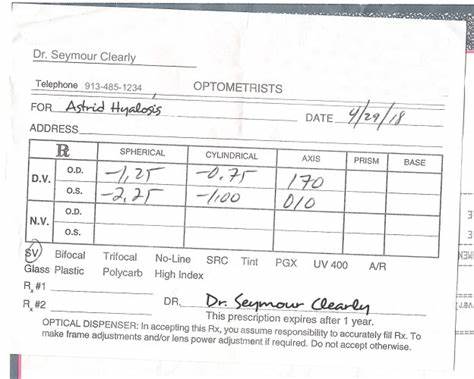 Dr. Seymour Clearly
Telephone 913-485-1234 OPTOMETRISTS
FOR Astrid Hyalosis DATE 4/29/18
ADDRESS
℞ SPHERICAL CYLINDRICAL AXIS PRISM BASE
D.V. O.D. -1,25 -0.75 170
O.S. -2,25 -1.00 010
N.V. O.D.
O.S.
SV Bifocal Trifocal No-Line SRC Tint PGX UV 400 A/R
Glass Plastic Polycarb High Index
Rx #1
Rx #2 DR. Dr. Seymour Clearly
This prescription expires after 1 year.
OPTICAL DISPENSER: In accepting this Rx, you assume responsibility to accurately fill Rx. To
make frame adjustments and/or lens power adjustment if required. Do not accept otherwise.